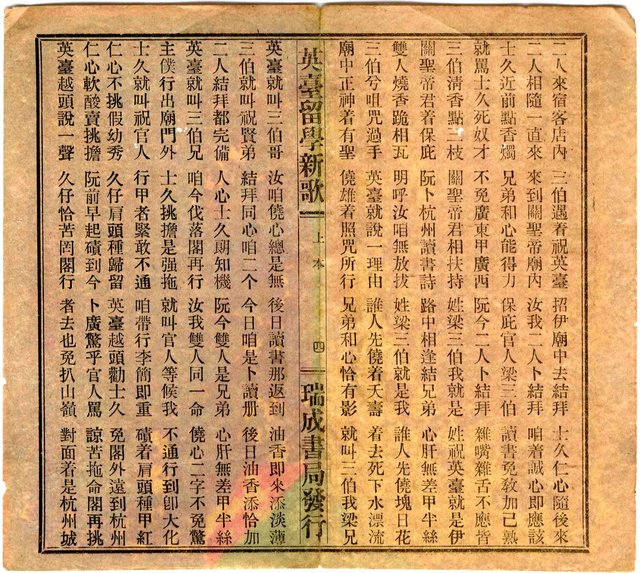 二人來宿客店內 三伯遇着祝英臺 招伊廟中去結拜 士久仁心隨後來
二人相隨一直來 來到關聖帝廟內 汝我二人卜結拜 咱着誠心即應該
士久近前點香燭 兄弟和心能得力 保庇官人梁三伯 讀書免敎加己熟
就罵士久死奴才 不免廣東甲廣西 阮今二人卜結拜 雜嘴雜舌不應皆
三伯淸香點二枝 關聖帝君相扶持 姓梁三伯我就是 姓祝英臺就是伊
關聖帝君着保庇 阮卜杭州讀書詩 路中相逢結兄弟 心肝無差甲半絲
雙人燒香跪相瓦 明呼汝咱無放拔 姓梁三伯就是我 誰人先僥塊日花
三伯兮咀咒過手 英臺就說一理由 誰人先僥着天壽 着去死下水漂流
廟中正神着有聖 僥雄着照咒所行 兄弟和心恰有影 就叫三伯我梁兄
英臺留學新歌 上本 四 瑞成書局發行
英臺就叫三伯哥 汝咱僥心總是無 後日讀書那返到 油香即來添淡薄
三伯就叫祝賢弟 結拜同心咱二个 今日咱是卜讀册 後日油香添恰加
二人結拜都完備 人心士久朗知機 阮今雙人是兄弟 心肝無差甲半絲
英臺就叫三伯兄 咱今伐落閣再行 汝我雙人同一命 僥心二字不免驚
主僕行出廟門外 士久挑擔是强拖 就叫官人等候我 不通行到卽大化
士久就叫祝官人 行甲者緊敢不通 咱帶行李簡即重 磧着肩頭種甲紅
仁心不挑假幼秀 久仔肩頭種歸留 英臺越頭勸士久 免閣外遠到杭州
仁心軟酸賣挑擔 阮前早起磧到今 卜廣驚乎官人罵 諒苦拖命閣再挑
英臺越頭說一聲 久仔恰苦罔閣行 者去也免扒山嶺 對面着是杭州城